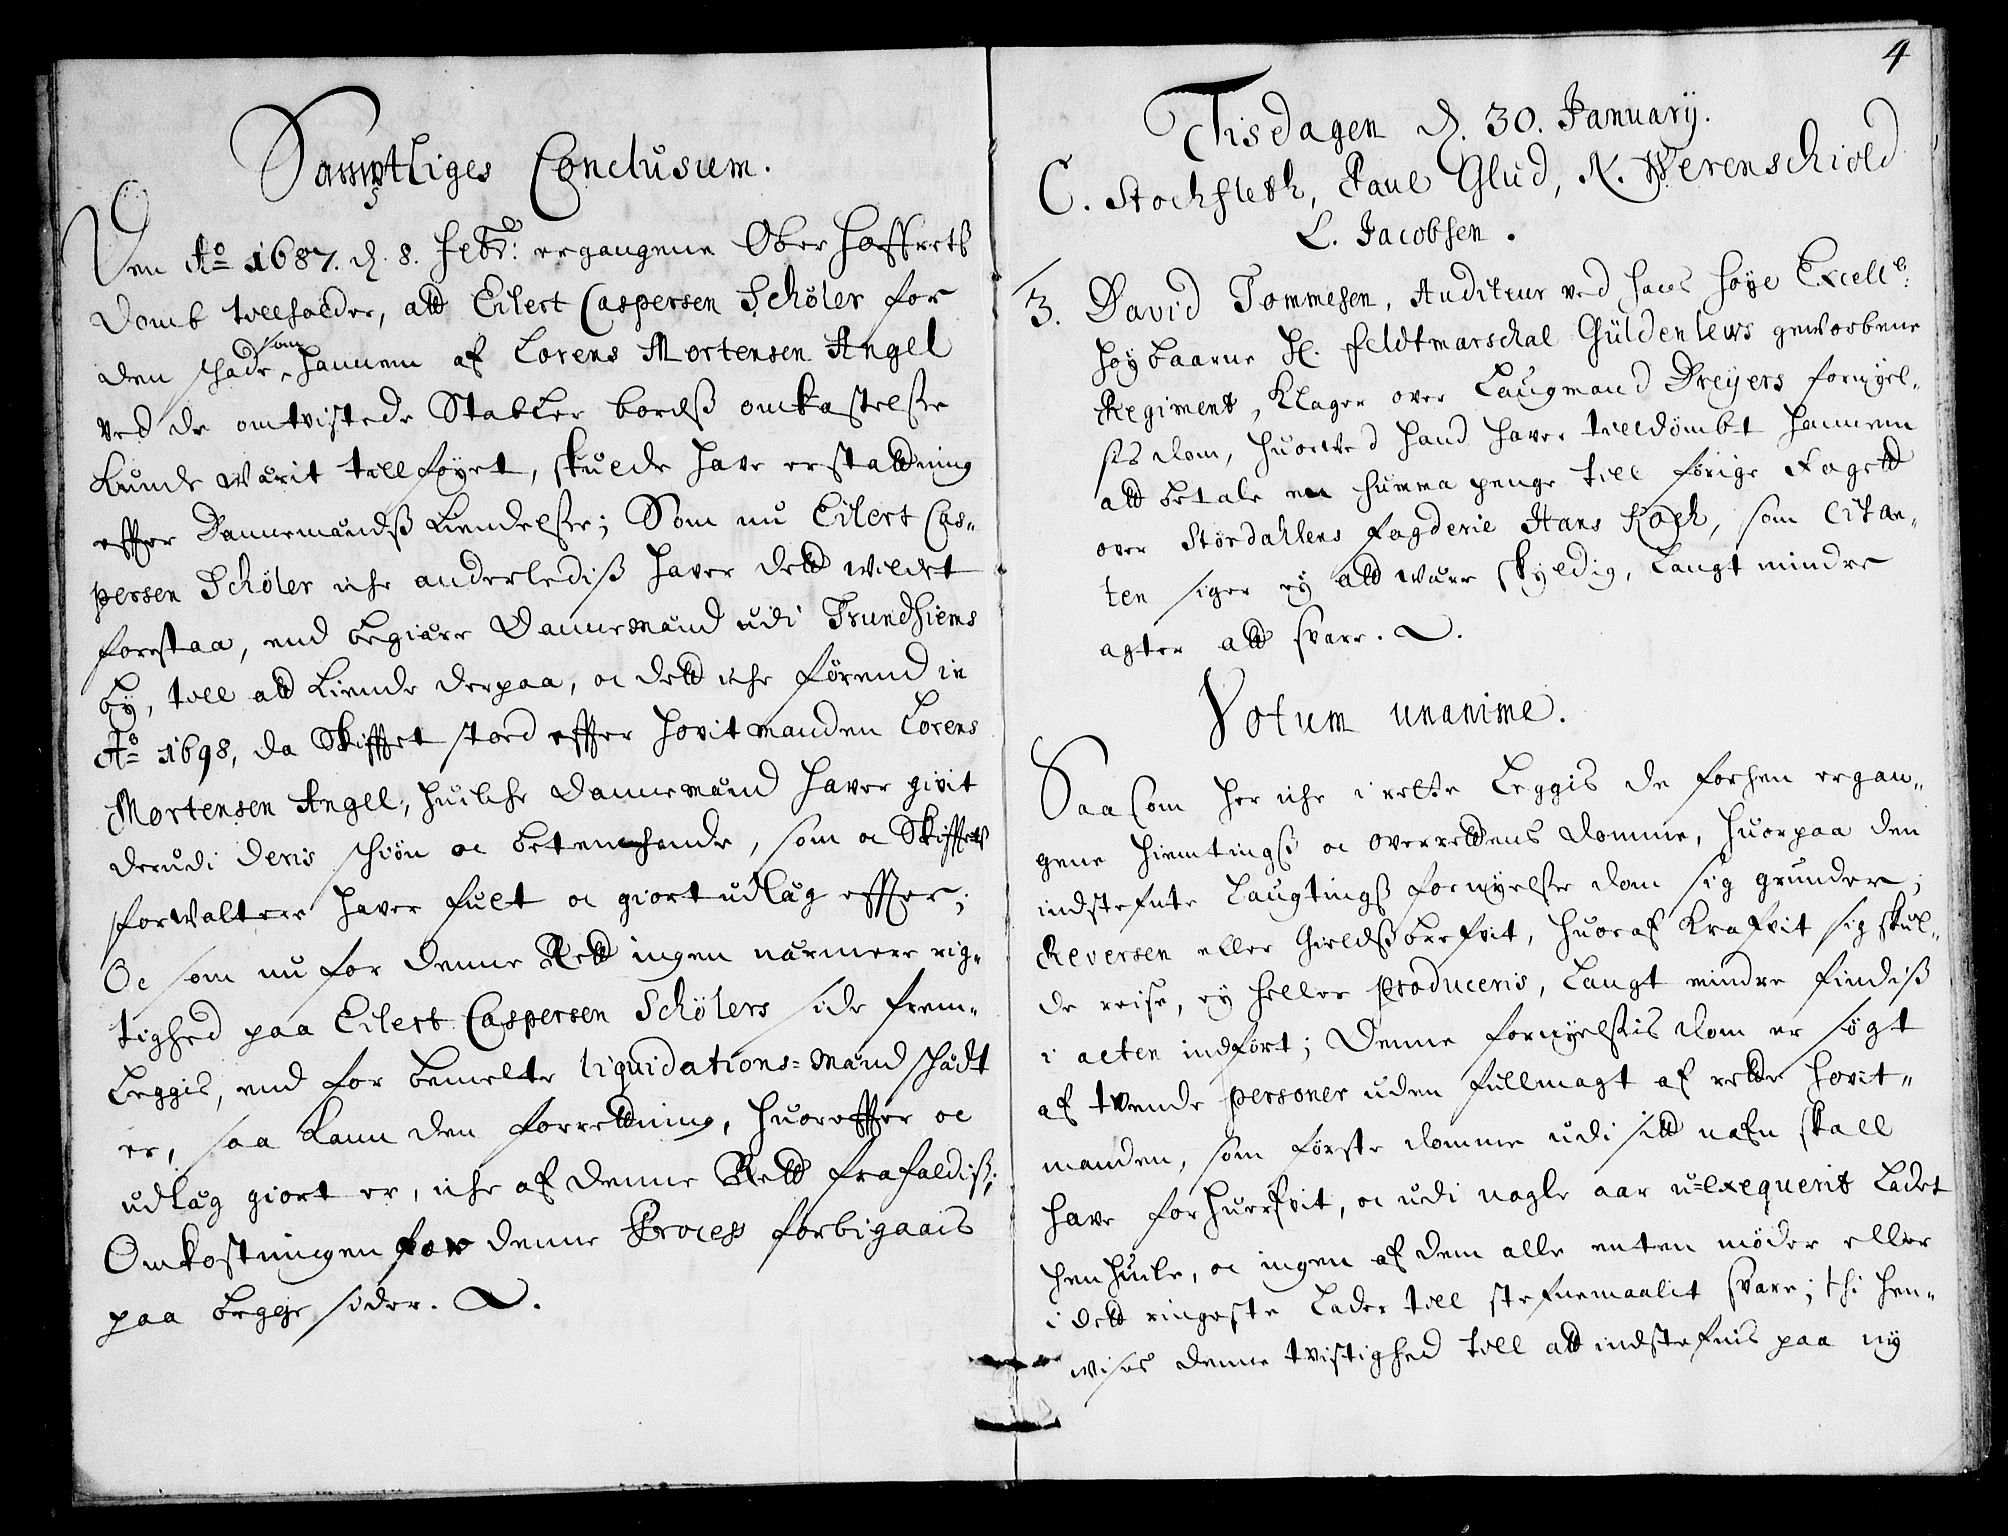 Samptliges Conclusum.
Den Ao 1687. d. 8. Febr: ergangene Ober Hoffretß
Domb tillholder, att Eilert Caspersen Schøler for
den schade som hannem af Lorens Mortensen Angel
ved de omtvistede Stabler bordß omkastelsse
kunde wærit tillføyet, skulde have erstattning
effter Dannemændß kiendelsse; Som nu Eilert Cas-
persen Schøler iche anderlediß haver dett wildet
forstaa, end begiære Dannemænd udi Trundhiems
by, till att kiende derpaa, oc dett iche førend in
Ao 1698, da Skifftet stoed effter hovitmanden Lorens
Mortensen Angel, huilche Dannemænd haver givit
derudi deris schiøn oc betenchende, som oc Skifftetß
forwaltere haver fult oc giort udlæg effter;
Oc som nu for denne Rett ingen nærmere rig-
tighed paa Eilert Caspersen Schølers side frem-
leggis, end for bemelte liquidations-mænd schædt
er, saa kann den forrettning, huoreffter oc
udlæg giort er, iche af denne Rett frafaldiß;
Omkostningen for denne Process forbigaais
paa begge sider.
4
Tisdagen d. 30. Januarij.
C. Stochfleth, Paul Glud, N. Werenschiold
L. Jacobsen.
3. David Tommesen, Auditeur ved hans høye Excell:
høybaarne H. Feldtmarschal Güldenlews geworbene
Regiment, klager over Laugmand Dreyers fornyel-
sis dom, huorved hand haver tilldømbt hannem
att betale en summa penge till forige Fogett
over Størdahlens fogderie Hans Koch, som Citan-
ten siger ey att være skyldig, langt mindre
agter att svare.
Votum unanime.
Saasom her iche i rette leggis de forhen ergan-
gene hiemtingß oc overrettens domme, huorpaa den
indstefnte Laugtingß fornyelsse dom sig grunder;
Reversen eller gieldßbrefvit, huoraf krafvit sig skul-
de reise, ey heller produceris, langt mindre findiß
i acten indført; Denne fornyelsis dom er søgt
af tvende personer uden fullmagt af rette hovit-
manden, som første domme udi sitt nafn skall
have forhuerfvit, oc udi nogle aar u-exequerit ladet
henhuile, oc ingen af dem alle enten møder eller
i dett ringeste lader till stefnemaalit svare; thi hen-
wises denne tvistighed till att indstefnis paa ny